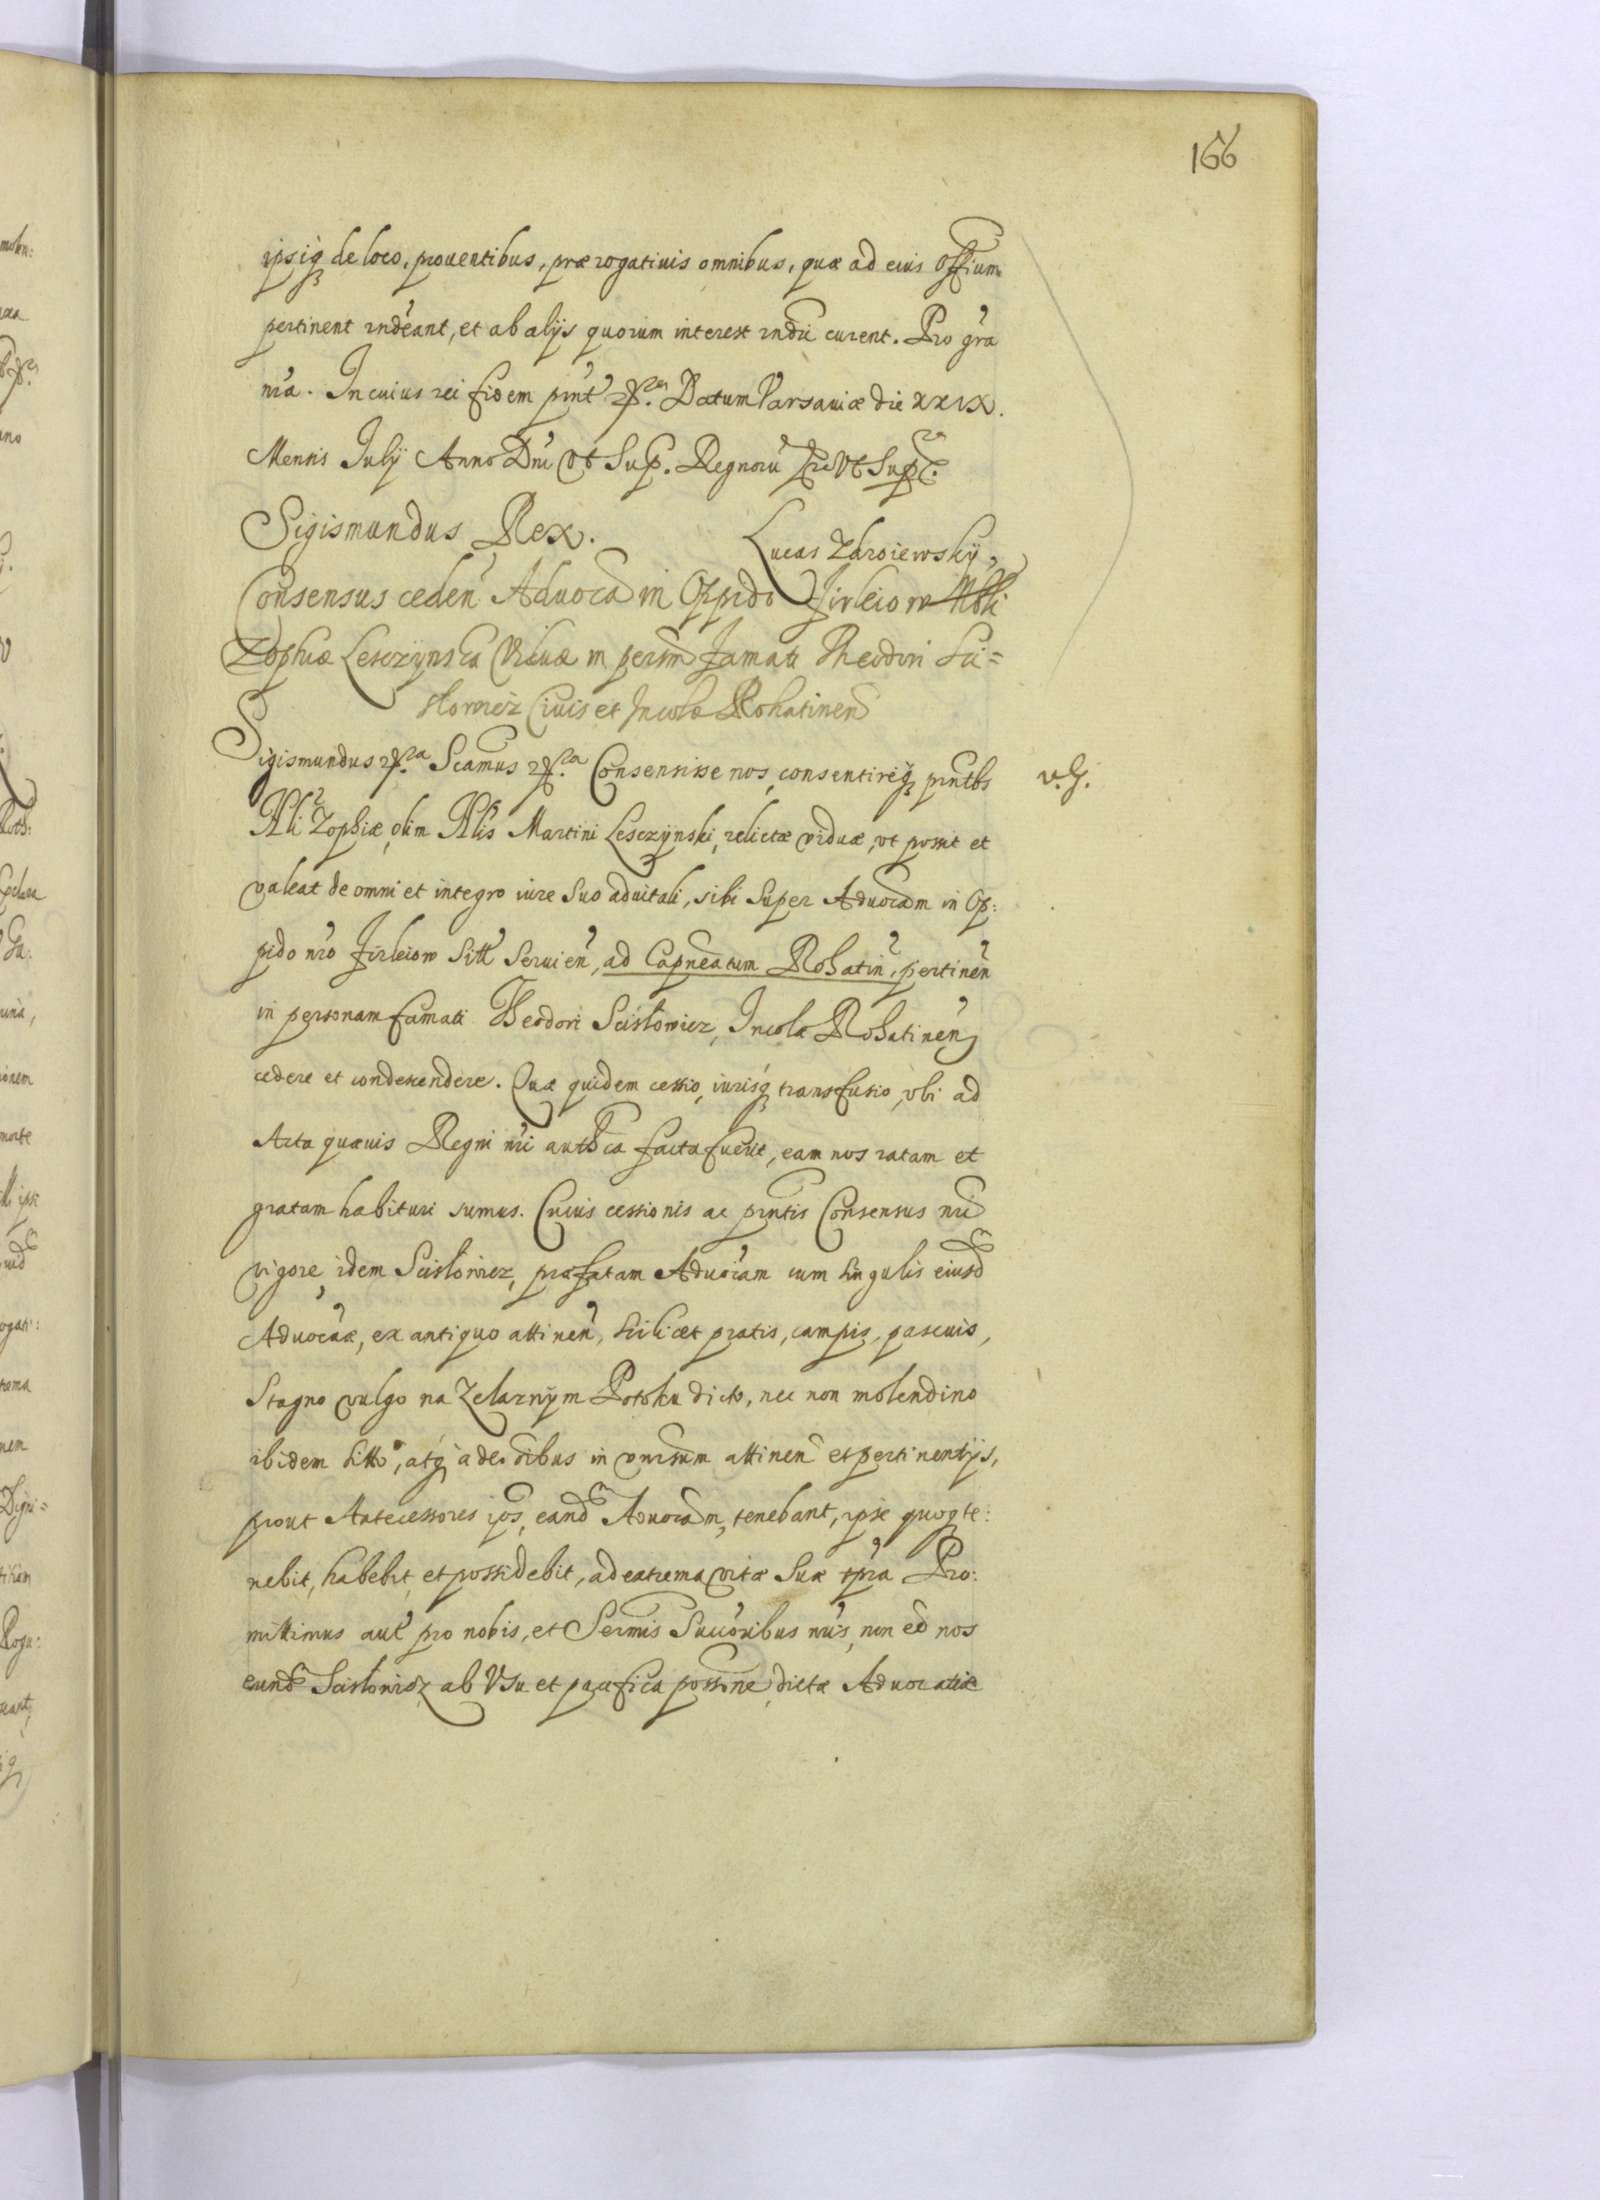 166
ipsiq̃ de loco, prouentibus, prærogatiuis omnibus, quæ ad eius Offium
pertinent rndeant, et ab alijs quorum interest rndri curent. Pro gra
nra. In cuius rei fidem pnt etc. Datum Varsauiæ die XXIX.
Mensis Julij Anno Dni vt Sup. Regnorũ etc vt Sup.
Sigismundus Rex. Lucas Zdroiewskÿ,
Consensus ceden Aduocam in Oppido Firleiow Nbli
Zophiæ Lesczÿnska Viduæ in persm Famati Theodori Sci=
słowicz Ciuis et Incolæ Rohatinen
Sigismundus etc. Scamus etc. Consensisse nos, consentireq̃ pntbs
v. g.
Nbli Zophiæ, olim Nblis Martini Lesczÿnski, relictæ viduæ, vt possit et
valeat de omni et integro iure suo aduitali, sibi super Aduocam in Op:
pido nro Firleiow sitt seruien, ad Capneatum Rohatin, pertinen
in personam famati Theodori Scisłowicz, Incolæ Rohatinen
cedere et condescendere. Quæ quidem cessio, iurisq̃ transfusio, vbi ad
Acta quæuis Regni nri authca facta fuerit, eam nos ratam et
gratam habituri sumus. Cuius cessionis ac pntis Consensus nri
vigore, idem Scisłowicz, præfatam Aduocam cum singulis eiusd
Aduocaæ, ex antiquo attinen, scilicet pratis, campis, pascuis,
Stagno vulgo na Zelaznÿm Potoku dicto, nec non molendino
ibidem sitto, atq̃ ædibus in vnrsum attinen et pertinentijs,
prout Antecessores ipõs, eand Aduocam, tenebant, ipse quoq̃ te:
nebit, habebit, et possidebit, ad extrema vitæ suæ tpra Pro:
mittimus aut pro nobis, et Sermis Succoribus nris, non eo nos
eund Scisłowicz ab Vsu et pacifica possone, dictæ Aduocatiæ